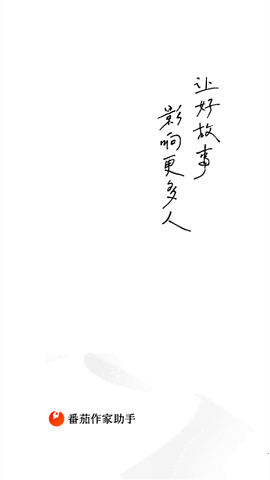 让好故事
影响更多人
番茄作家助手